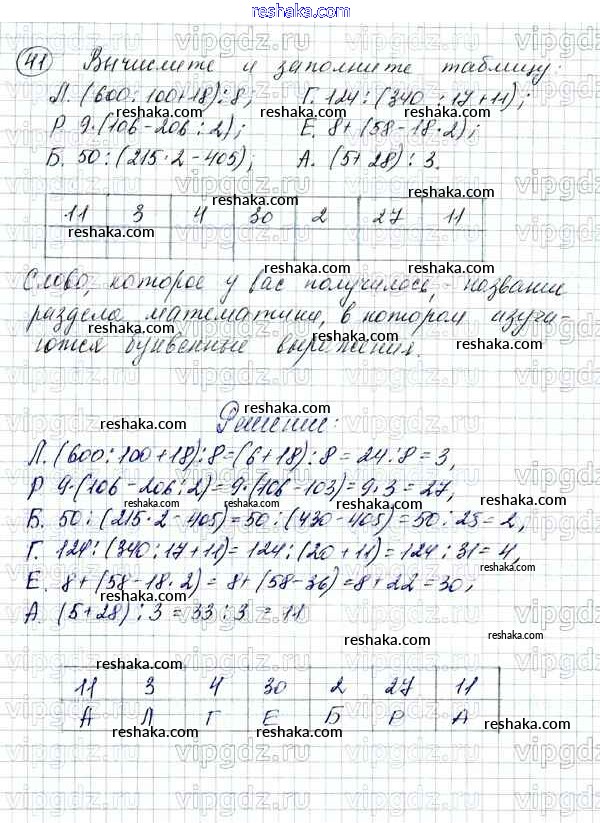 reshaka.com
41 Вычислите и заполните таблицу:
Л. (600 : 100+18) : 8; Г. 124 : (340 : 17+11);
Р 9·(106-206 : 2); Е. 8+(58-18·2);
Б. 50 : (215·2-405); А. (5+28) : 3.
11 3 4 30 2 27 11
Слово, которое у вас получилось, - название
раздела математики, в котором изуча-
ются буквенные выражения.
Решение:
Л. (600 : 100+18) : 8=(6+18) : 8=24 : 8=3,
Р 9·(106-206 : 2)=9·(106-103)=9·3=27,
Б. 50 : (215·2-405)=50 : (430-405)=50 : 25=2,
Г. 124 : (340 : 17+11)=124 : (20+11)=124 : 31=4,
Е. 8+(58-18·2)=8+(58-36)=8+22=30;
А. (5+28) : 3=33 : 3=11
11 3 4 30 2 27 11
А Л Г Е Б Р А